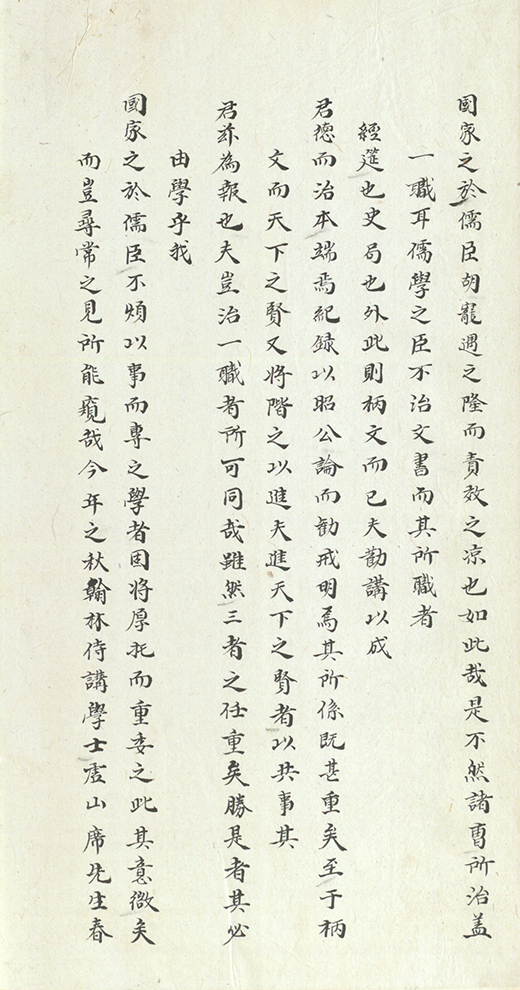 國家之於儒臣胡寵遇之隆而責效之凉也如此哉是不然諸曹所治盖
一職耳儒學之臣不治文書而其所職者
經筵也史局也外此則柄文而已夫勸講以成
君德而治本端焉紀録以昭公論而勸戒明焉其所係既甚重矣至于柄
文而天下之賢又將階之以進夫進天下之賢者以共事其
君茲為報也夫豈治一職者所可同哉雖然三者之任重矣勝是者其必
由學乎我
國家之於儒臣不煩以事而專之學者固將厚托而重委之此其意微矣
而豈尋常之見所能窺哉今年之秋翰林侍講學士虚山席先生春